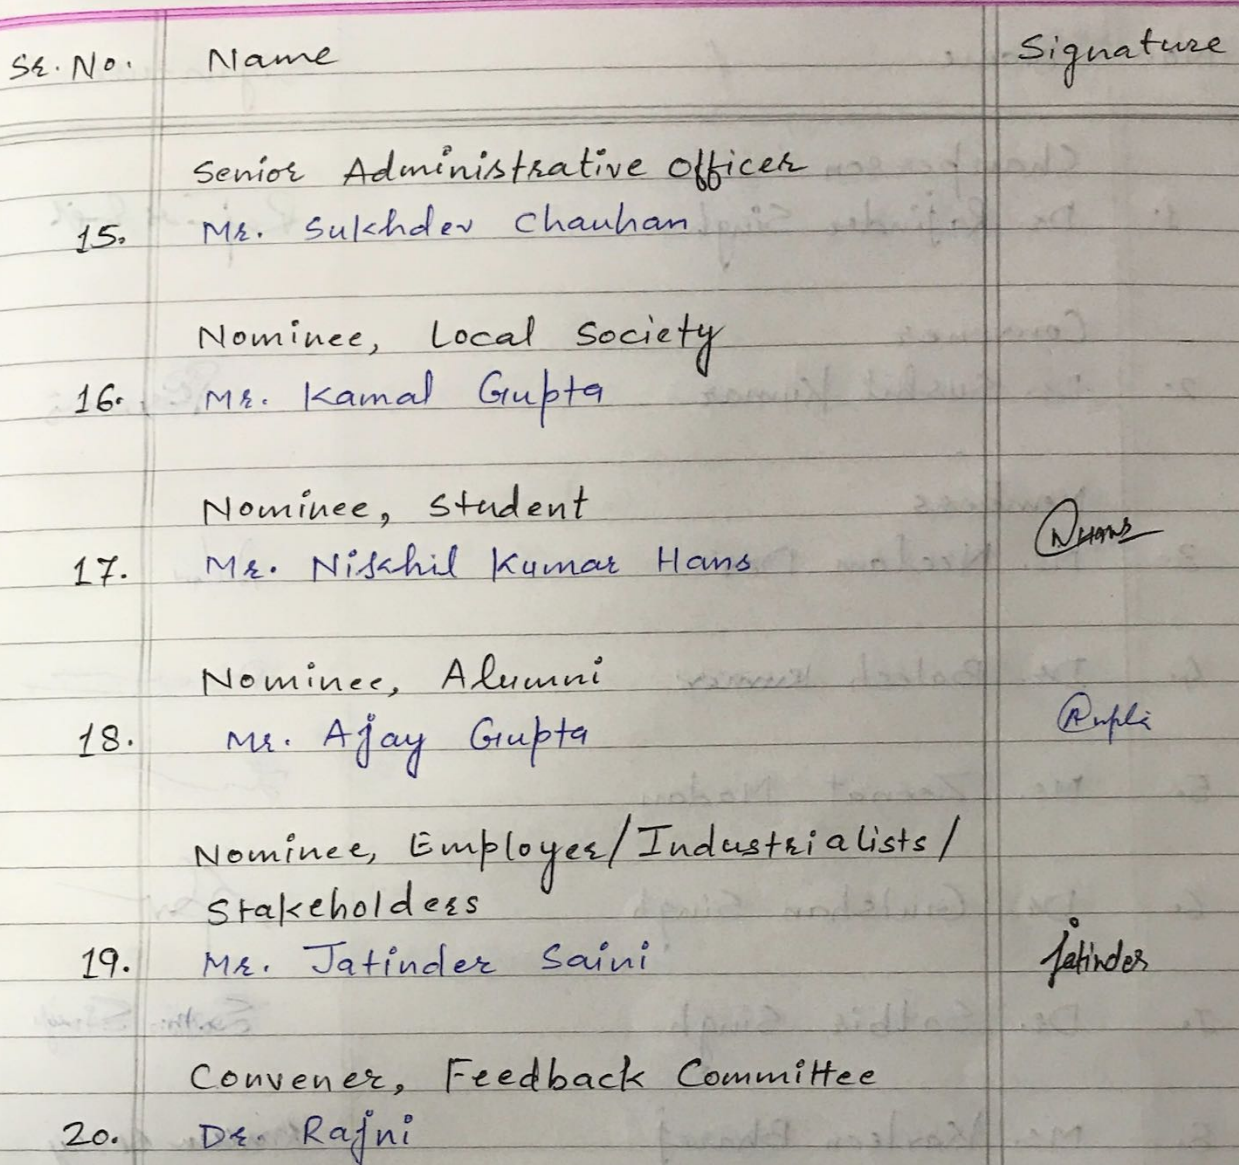 Sr. No. Name Signature
Senior Administrative Officer
15. Mr. Sukhdev Chauhan
Nominee, Local Society
16. Mr. Kamal Gupta
Nominee, Student
17. Mr. Nikhil Kumar Hans NHANS
Nominee, Alumni
18. Mr. Ajay Gupta
Nominee, Employer/Industrialists/
Stakeholders
19. Mr. Jatinder Saini Jatinder
Convener, Feedback Committee
20. Dr. Rajni